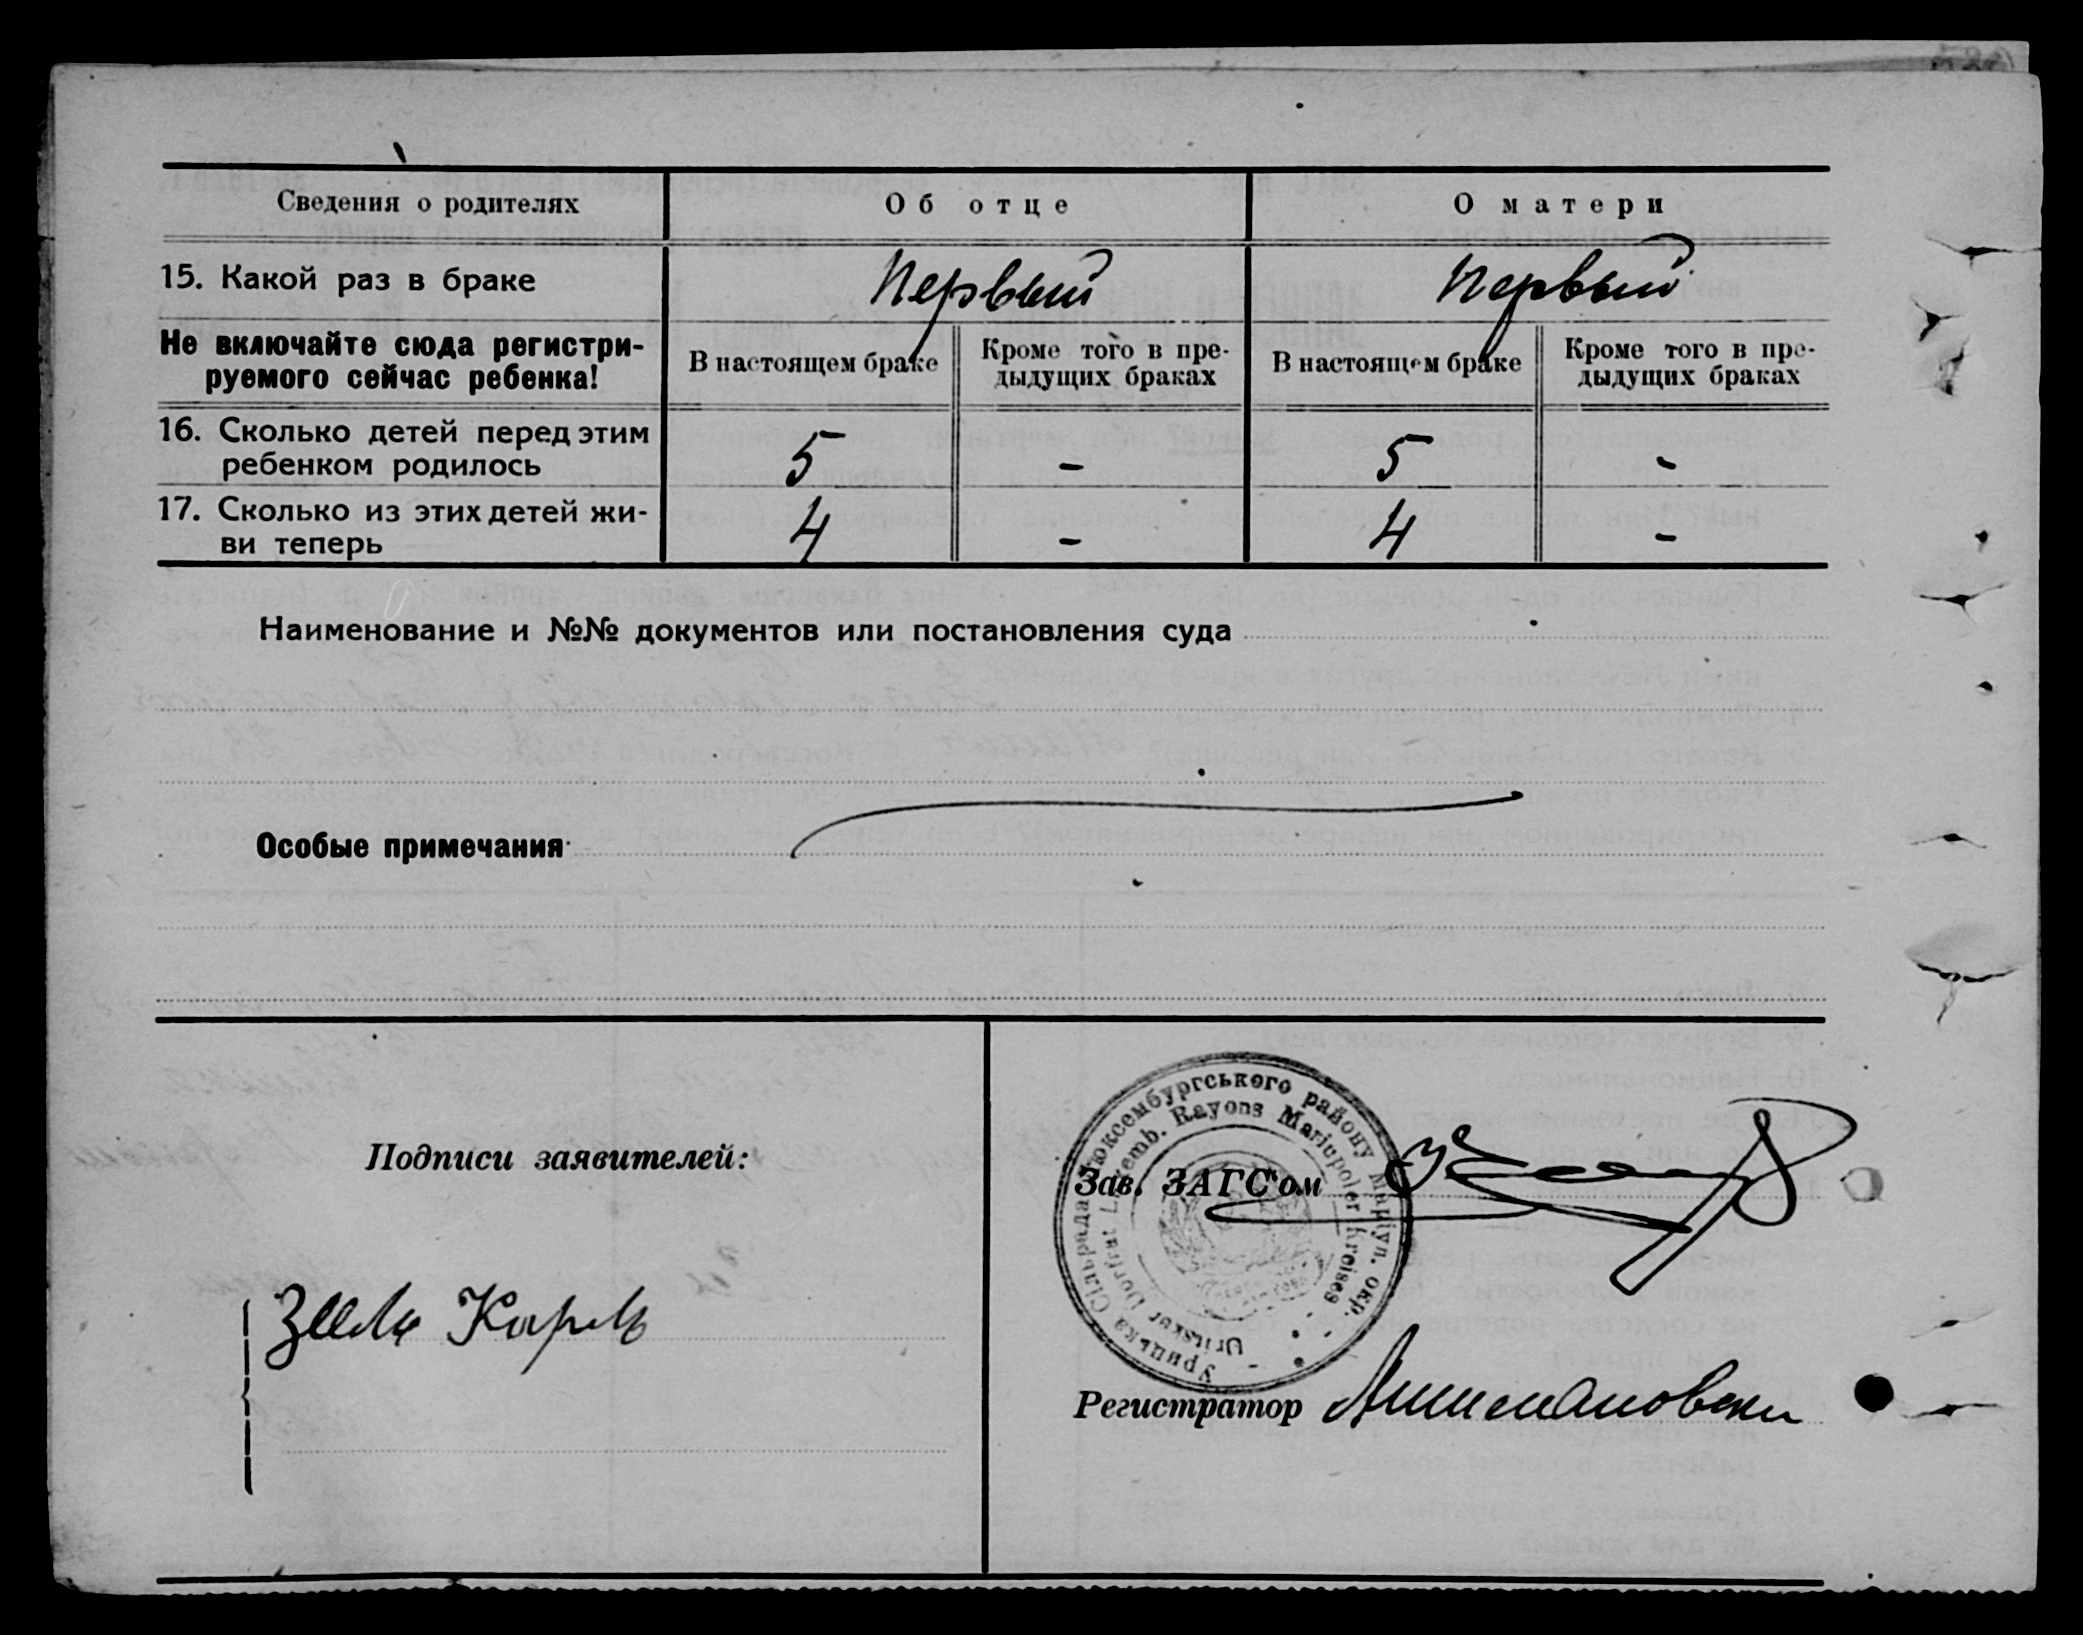 Сведения о родителях Об отце О матери
15. Какой раз в браке Первый Первый
Не включайте сюда регистри-
руемого сейчас ребенка!
В настоящем браке
Кроме того в пре-
дыдущих браках
В настоящем браке
Кроме того в пре-
дыдущих браках
16. Сколько детей перед этим
ребенком родилось 5 - 5 -
17. Сколько из этих детей жи-
ви теперь 4 - 4 -
Наименование и №№ документов или постановления суда
Особые примечания
Подписи заявителей:
Карль
Зав. ЗАГС'ом
Урицька Сільрада Люксембургського району Маріуп. окр.
Uritsker Dorfrat Luxemb. Rayons Mariupoler Kreises
Регистратор